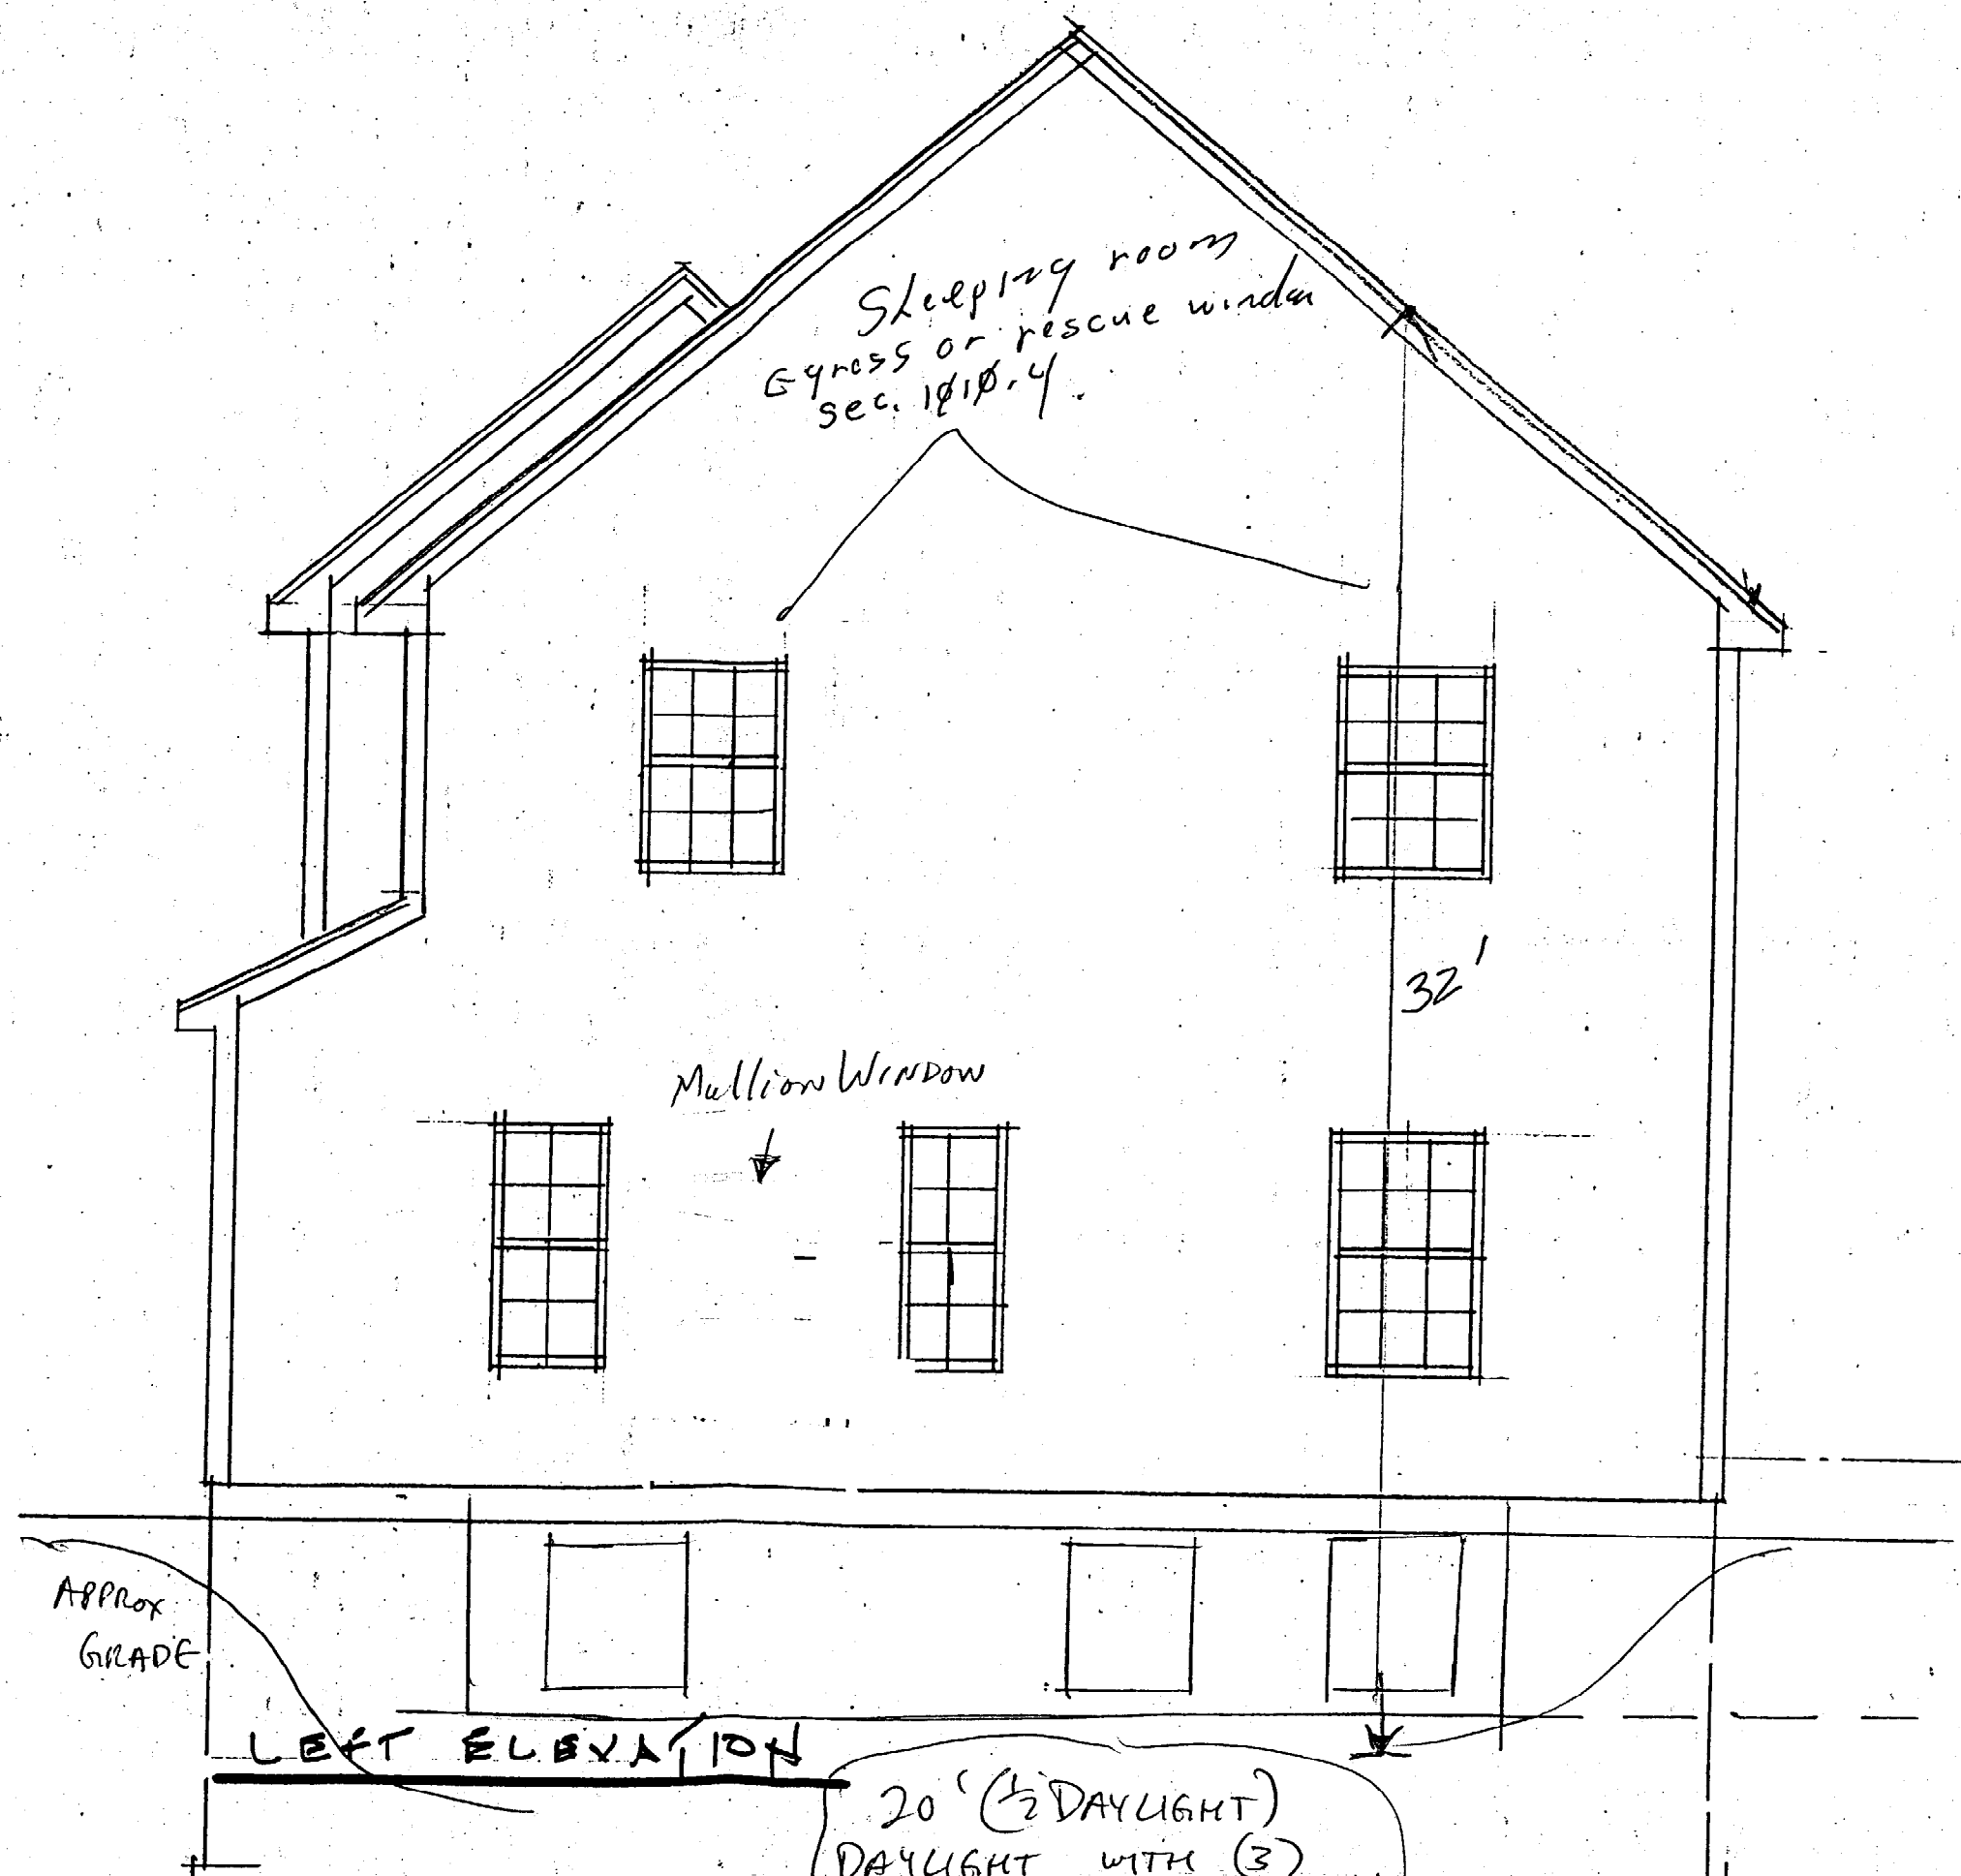 Sleeping room
Egress or rescue window
sec. 1010.4.
32'
Mullion WINDOW
APPROX
GRADE
LEFT ELEVATION
20' (½ DAYLIGHT)
DAYLIGHT WITH (3)